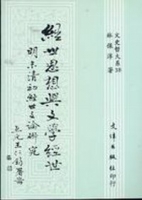 文史哲大系59
林保淳著
經世思想與文學經世
明末清初經世文論研究
文津出版社印行